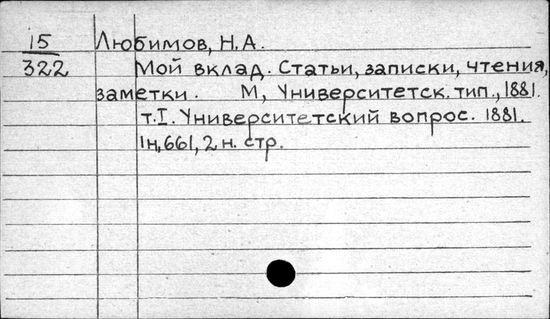 15 Любимов, Н.А.
322 Мой вклад. Статьи, записки, чтения,
заметки. М, Университетск. тип., 1881.
т.I. Университетский вопрос. 1881.
1н, 661, 2 н. стр.